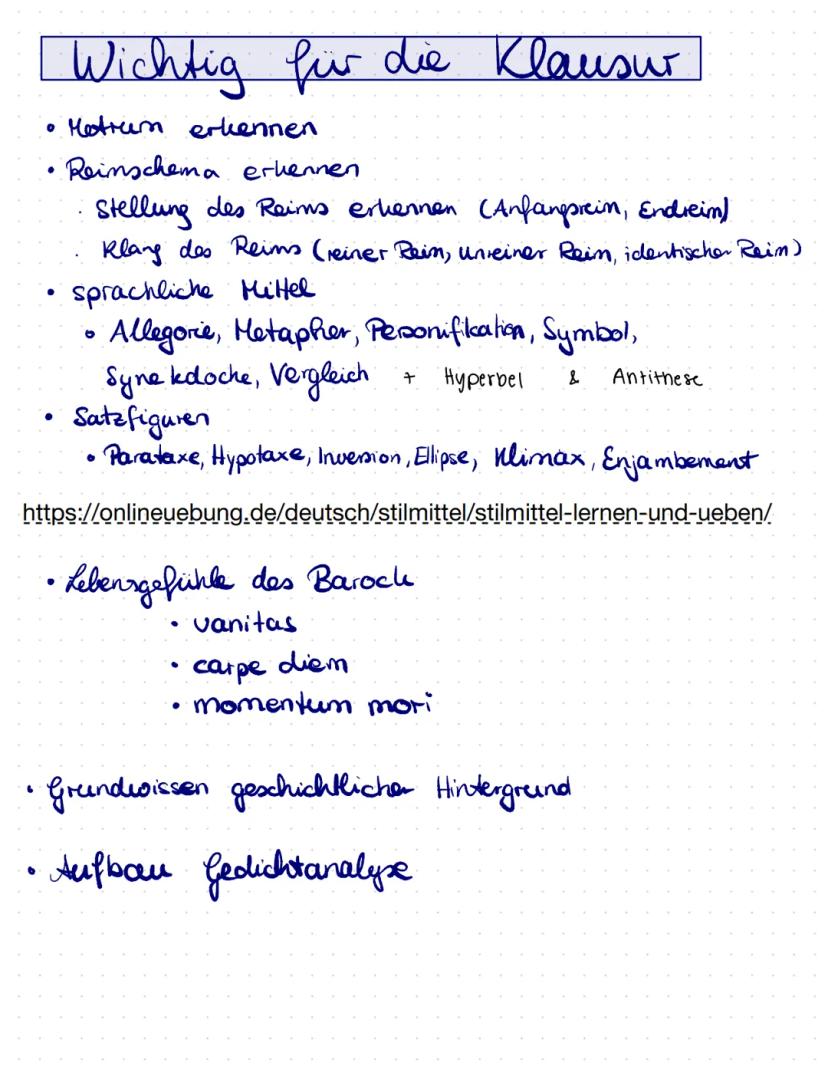 Wichtig für die Klausur
• Metrum erkennen
• Reimschema erkennen
· Stellung des Reims erkennen (Anfangsreim, Endreim)
· Klang des Reims (reiner Reim, unreiner Reim, identischer Reim)
• sprachliche Mittel
• Allegorie, Metapher, Personifikation, Symbol,
Synekdoche, Vergleich + Hyperbel & Antithese
• Satzfiguren
• Parataxe, Hypotaxe, Inversion, Ellipse, Klimax, Enjambement
https://onlineuebung.de/deutsch/stilmittel/stilmittel-lernen-und-ueben/
• Lebensgefühle des Barock
• vanitas
• carpe diem
• momentum mori
• Grundwissen geschichtlicher Hintergrund
• Aufbau Gedichtanalyse